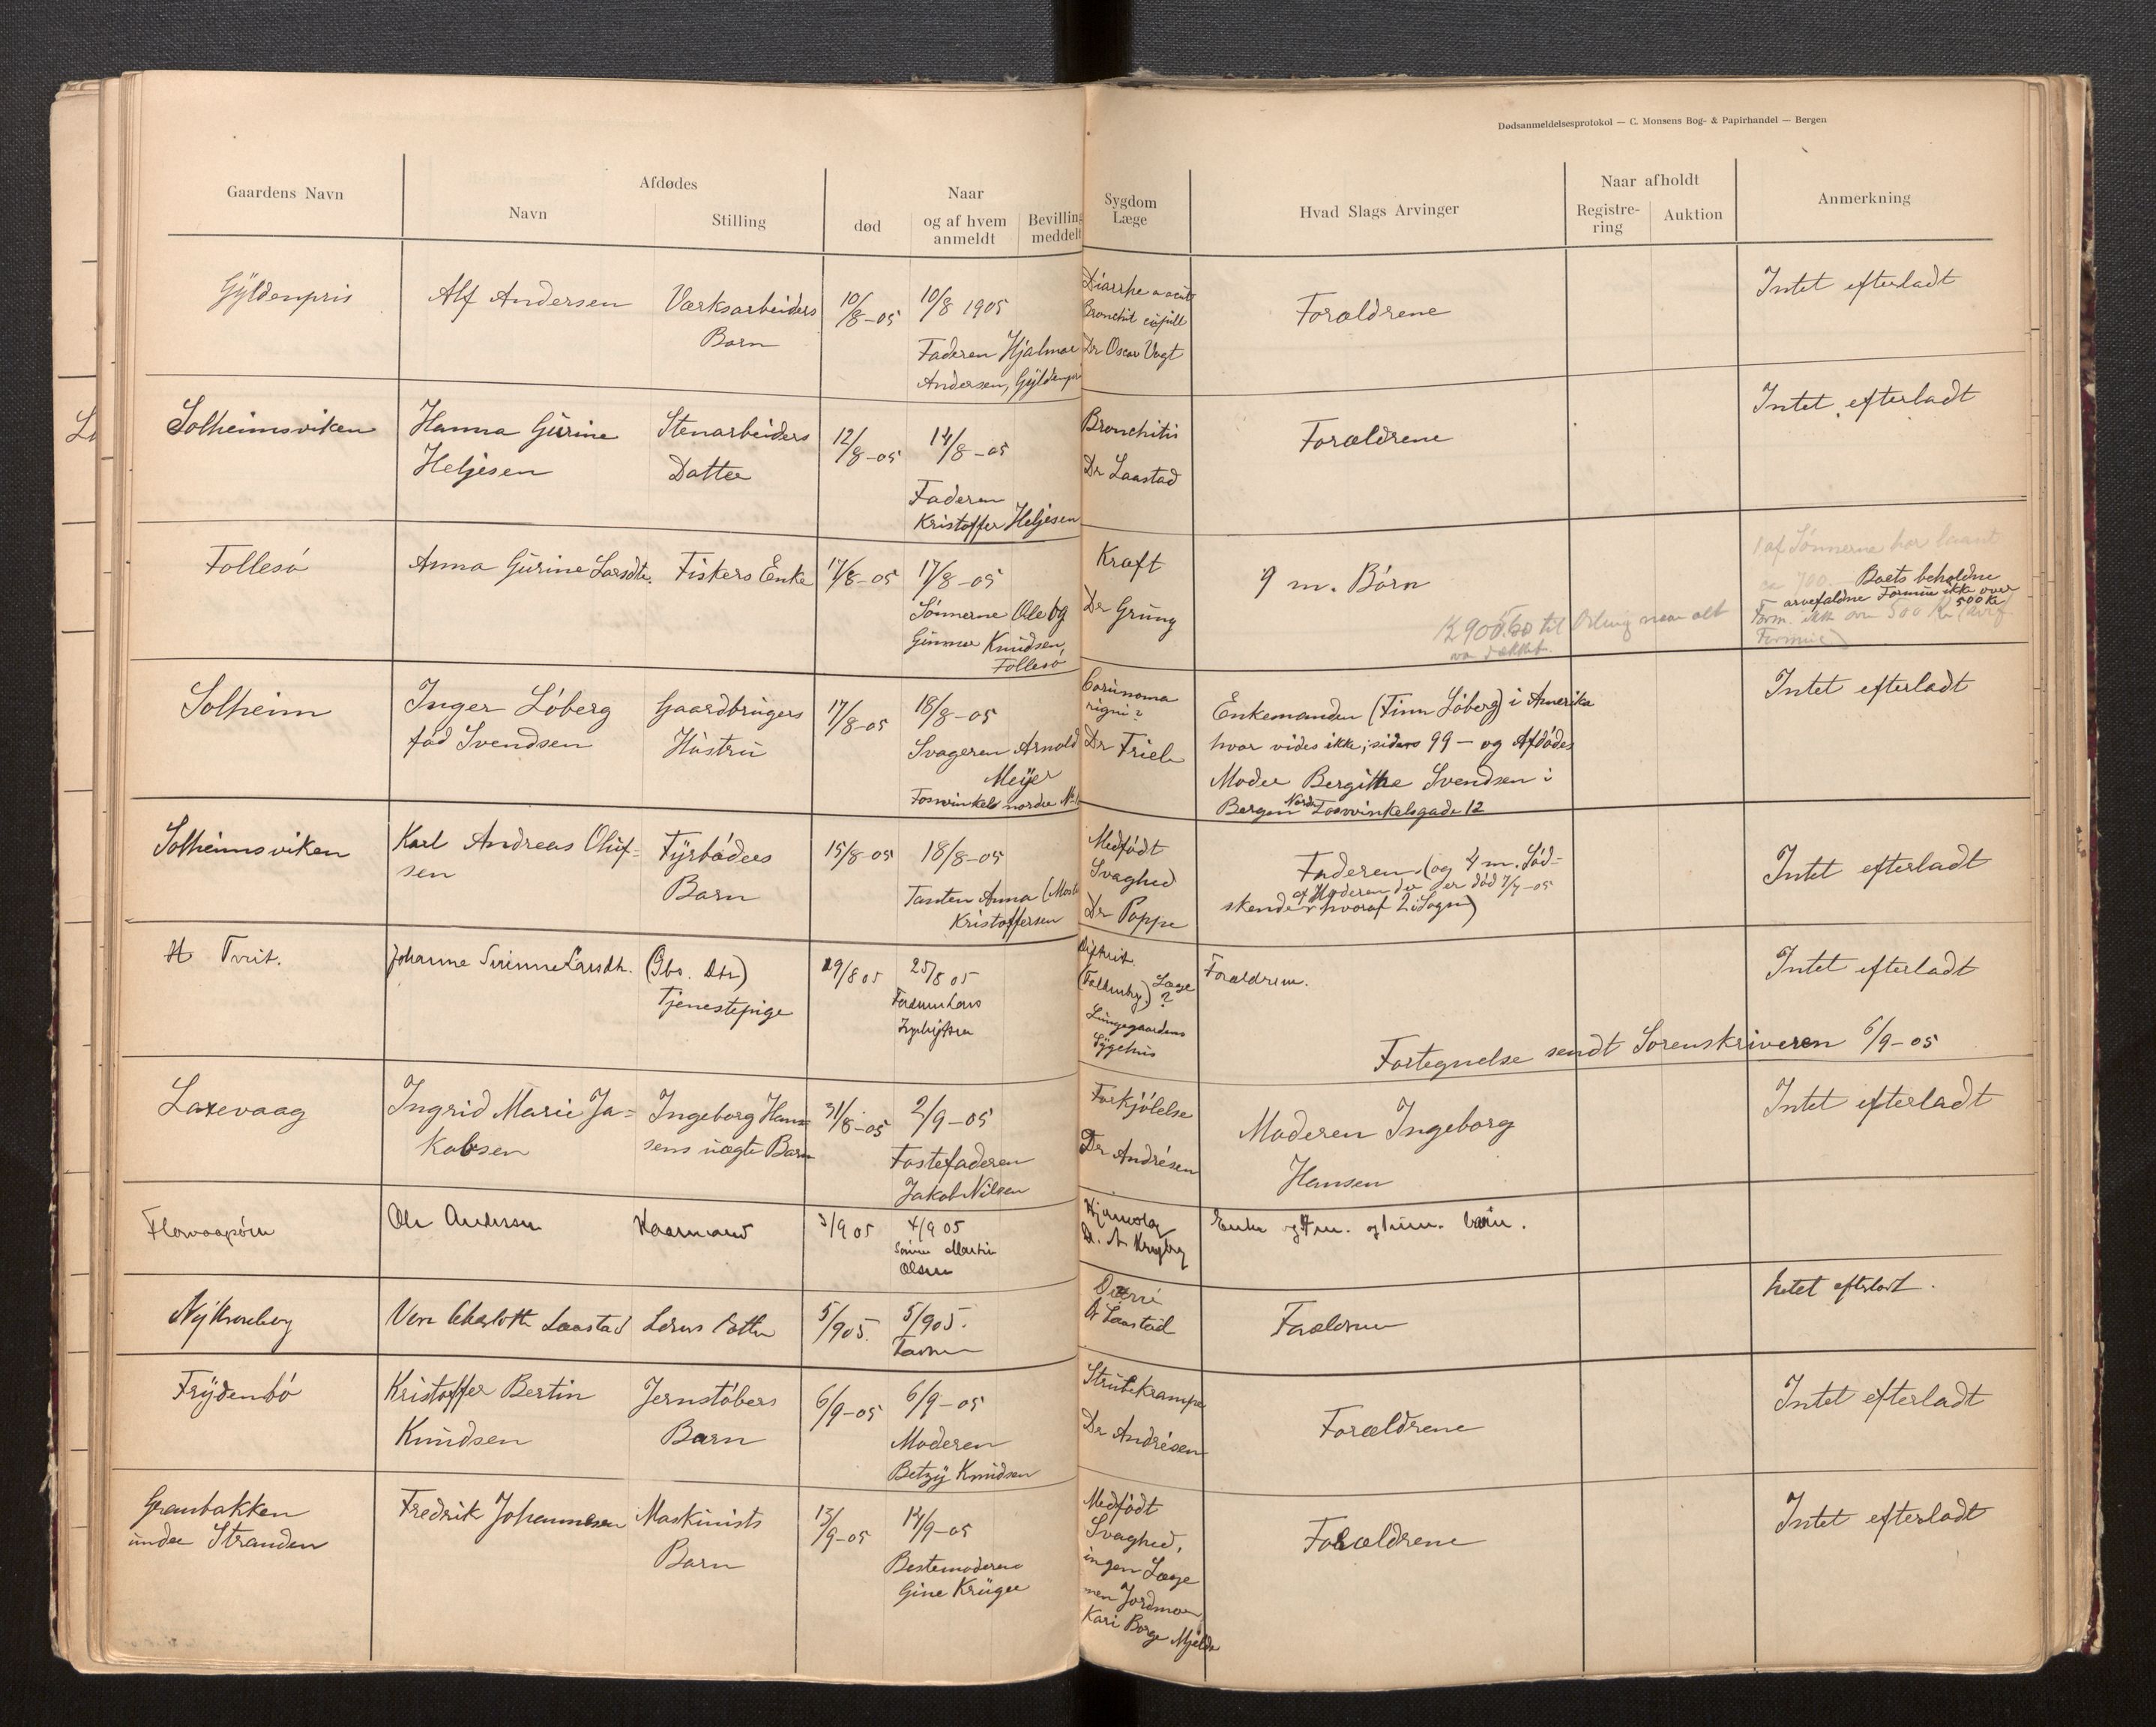 Dødsanmeldelsesprotokol — C. Monsens Bog- & Papirhandel — Bergen
Gaardens Navn
Afdødes
Navn
Stilling
Naar
død
og af hvem
anmeldt
Bevilling
meddelt
Sygdom
Læge
Hvad Slags Arvinger
Naar afholdt
Registre-
ring
Auktion
Anmerkning
Gyldenpris
Alf Andersen
Værksarbeiders
Barn
10/8-05
10/8 1905
Faderen Hjalmar
Andersen, Gyldenpris
Diarrhe
Bronchit
Dr Oscar Vogt
Forældrene
Intet efterladt
Solheimsviken
Hanna Gurine
Heljesen
Stenarbeiders
Datter
12/8-05
14/8-05
Faderen
Kristoffer Heljesen
Bronchitis
Dr Laastad
Forældrene
Intet efterladt
Follesø
Anna Gurine Larsdtr.
Fiskers Enke
17/8-05
17/8-05
Sønnerne Ole og
Gunnar Knudsen,
Follesø
Kræft
Dr Grung
9 m. Børn
1 af Sønnerne har laant
Boets beholdne
arvefaldne Formue ikke over
500 Kr
Solheim
Inger Løberg
fød Svendsen
Gaardbrugers
Hustru
17/8-05
18/8-05
Svageren Arnold
Meyer
Fosvinkels nordre
Dr Friele
Enkemanden (Finn Løberg) i Amerika
hvor vides ikke; siden 99 - og Afdødes
Moder Bergithe Svendsen i
Bergen Nordre Fosvinkelsgade 12
Intet efterladt
Solheimsviken
Karl Andreas Oluf-
sen
Fyrbøders
Barn
15/8-05
18/8-05
Tanten Anna
Kristoffersen
Medfødt
Svaghed
Dr Poppe
Faderen (og 4 m. Sød-
af Moderen der er død 7/7-05
skende hvoraf 2 i Sogn)
Intet efterladt
H Tveit.
Johanne Larsdtr.
(Gbr. Dtr)
Tjenestepige
29/8 05
25/8 05
Difterit.
Læge
?
Lungegaardens
Sygehus
Forældrene.
Intet efterladt
Fortegnelse sendt Sorenskriveren 6/9-05
Laxevaag
Ingrid Marie Ja-
kobsen
Ingeborg Han-
sens uægte Barn
31/8-05
2/9-05
Fosterfaderen
Jakob Nilsen
Forkjølelse
Dr Andrésen
Moderen Ingeborg
Hansen
Intet efterladt
Ole Andersen
Kaarmand
3/9 05
4/9 05
Sønnen Martin
Olsen
Hjerneslag
Enke og 4 m. og 1 um. barn.
Ny Kronborg
Vera Charlotte Laastad
Læges Datter
5/9 05.
5/9 05.
Faderen
Dr Laastad
Forældrene
Intet efterladt.
Frydenbø
Kristoffer Bertin
Knudsen
Jernstøbers
Barn
6/9-05
6/9-05
Moderen
Betzy Knudsen
Strubekrampe
Dr Andrésen
Forældrene
Intet efterladt
Granbakken
under Stranden
Fredrik Johannesen
Maskinists
Barn
13/9-05
14/9-05
Bestemoderen
Gine Krüger
Medfødt
Svaghed,
ingen Læge
men Jordmor
Kari Borge Mjelde
Forældrene
Intet efterladt